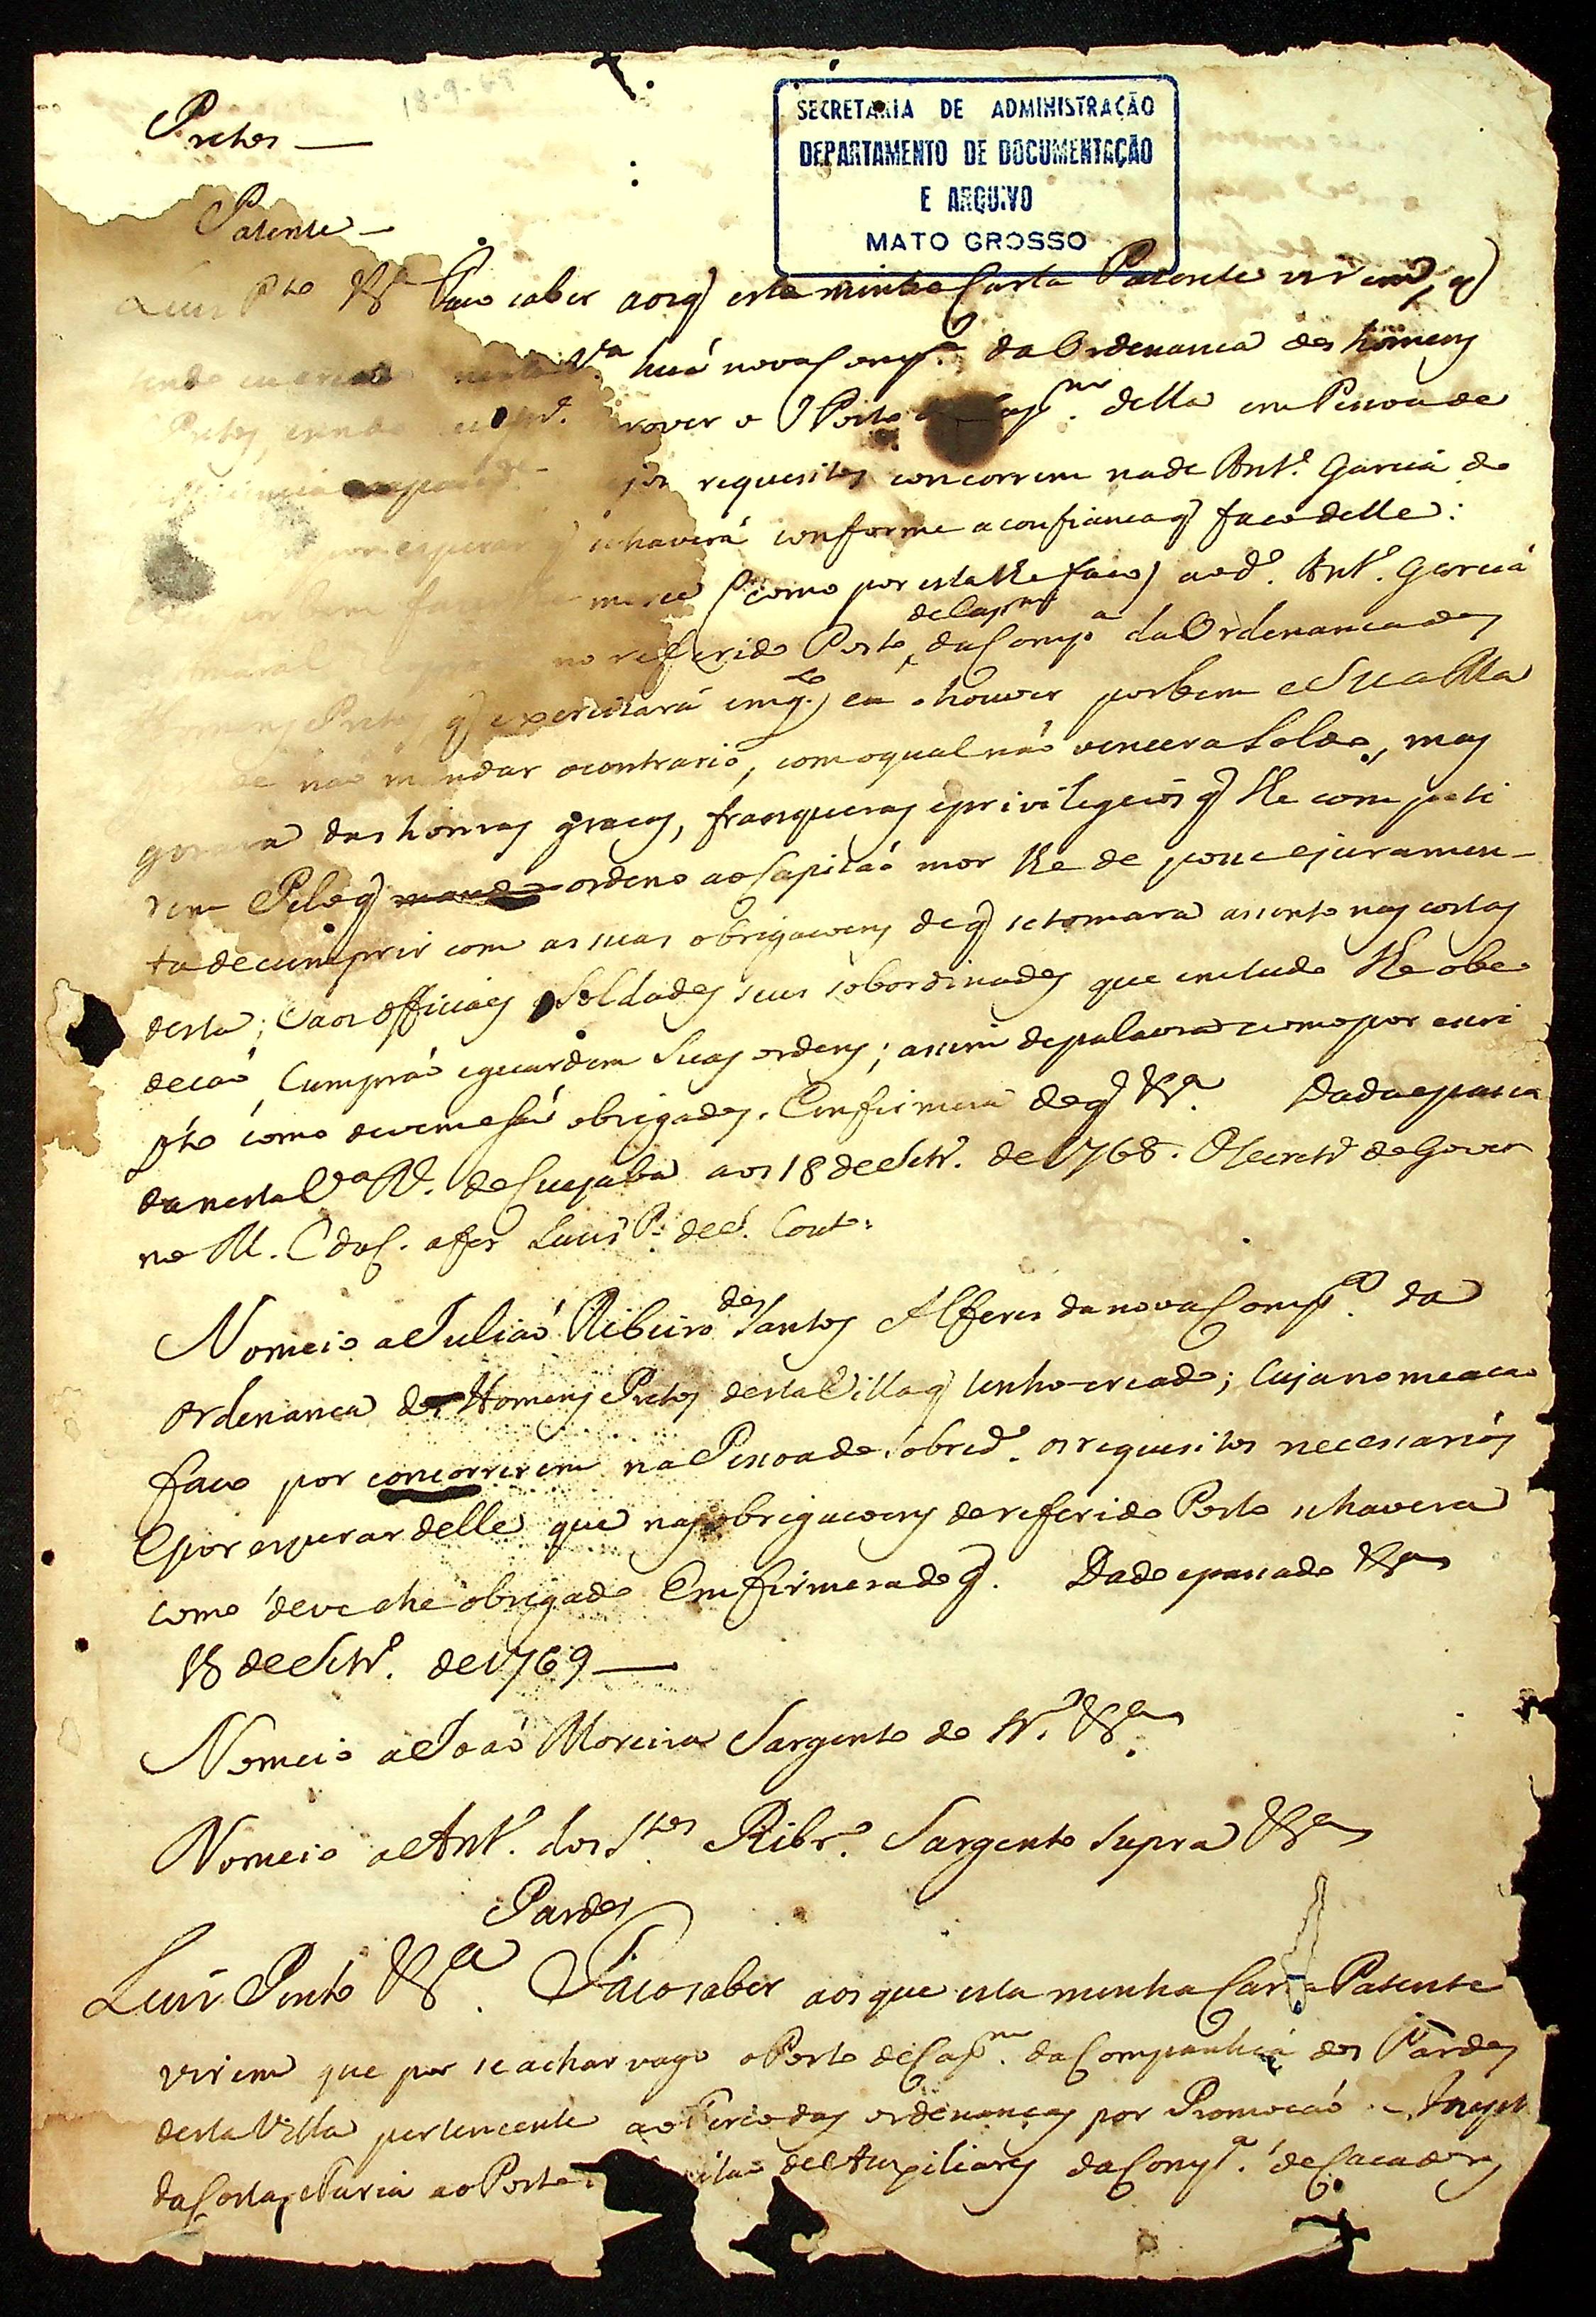 18-9-69
Pretos —
SECRETARIA DE ADMINISTRAÇÃO
DEPARTAMENTO DE DOCUMENTAÇÃO
E ARQUIVO
MATO GROSSO
Patente —
Luis Pto &ª Faço saber aos q̃ esta minha Carta Patente virem, q̃
tendo creado nesta Vª huá nova Compª da Ordenanca dos homens
Pretos, prover o Posto Capᵐ della em Pessoa de
requesitos concorrem na de Antº Garcia do
por esperar q̃ se haverá conforme a confianca q̃ faco delle:
merce (como por esta lhe faco) ao dº Antº Garcia
de Capᵐ
no referido Posto da Compª da Ordenanca dos
Homens Pretos q̃ exercitará emqᵗº eu o houver por bem e Sua Mª
não mandar o contrario, com o qual não vencera Soldo, mas
gozara das honras gracas, franquezas e privilegios q̃ lhe competi
rem Pelo q̃ mando ordeno ao Capitaó mor lhe de posse e juramen-
to de cumprir com as suas obrigacoens de q̃ se tomara assento nas costas
desta; E aos Officiaes e Soldados seus sobordinados que em tudo lhe obe
decaó Cumpraó e guardem Suas ordens; assim de palavra como por escri
pto como devem e saó obrigados. Em firmeza de q̃ &ª Dada e passa
da nesta Vª Rl. do Cuyabá aos 18 de Setrº de 1768. O Secretrº do Gover
no M. C do C. a fes Luis Pº de S. Couto.
Nomeio a Juliaó Ribeiro dos Santos Alferes da nova Compª da
Ordenanca dos Homens Pretos desta Villa q̃ tenho creado; Cuja nomeacaó
faco por concorrerem na Pessoa do sobredº os requesitos necessarios
E por esperar delle que nas obrigacoens do referido Posto se havera
como deve e he obrigado Em firmeza de q̃. Dado e passado &ª
18 de Setrº de 1769 —
Nomeio a Joaó Moreira Sargento do Nº &ª
Nomeio a Antº dos Stos Ribrº Sargento Supra &ª
Pardos
Luis Pinto &ª. Faco saber aos que esta minha Carta Patente
virem que por se achar vago o Posto de Capᵐ da Companhia dos Pardos
desta Villa pertencente ao Terco das ordenancas por Promocaó
da Costa, Faria ao Posto de Auxiliares da Compª de Cacadores